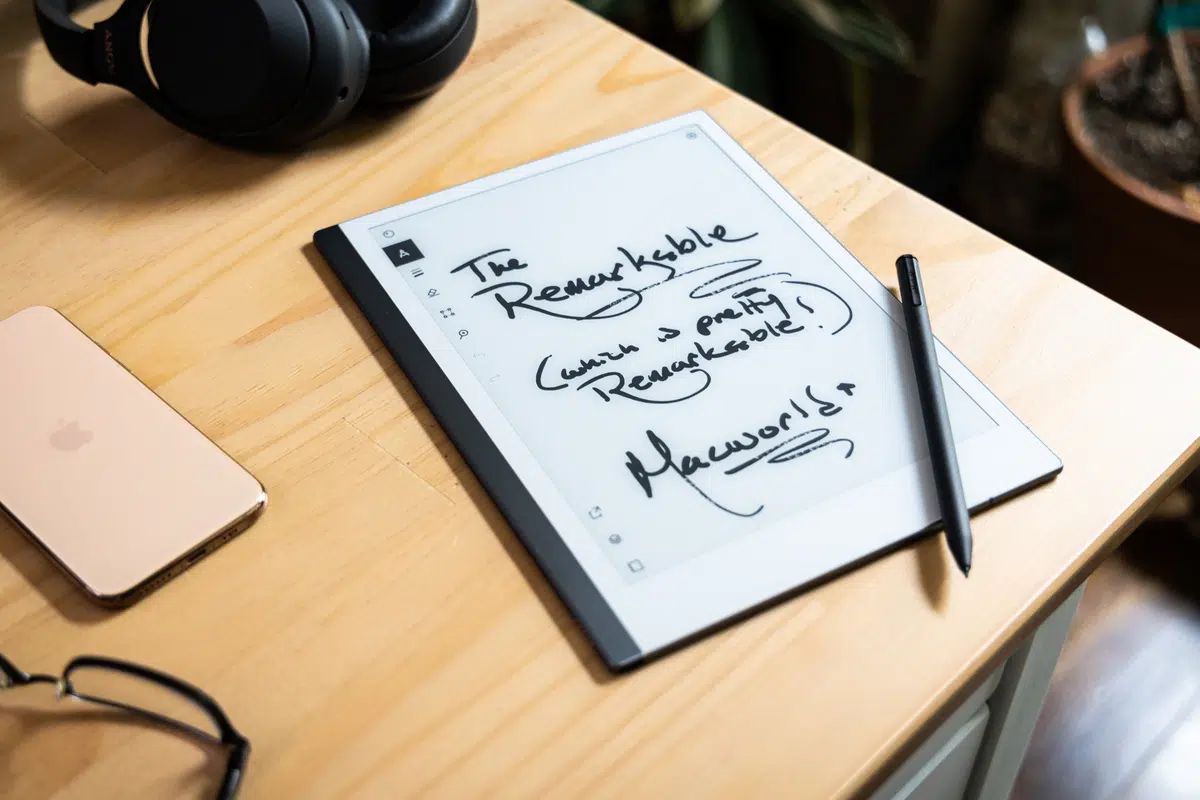 SONY
The
Remarkable
(which is pretty
Remarkable!)
Macworld